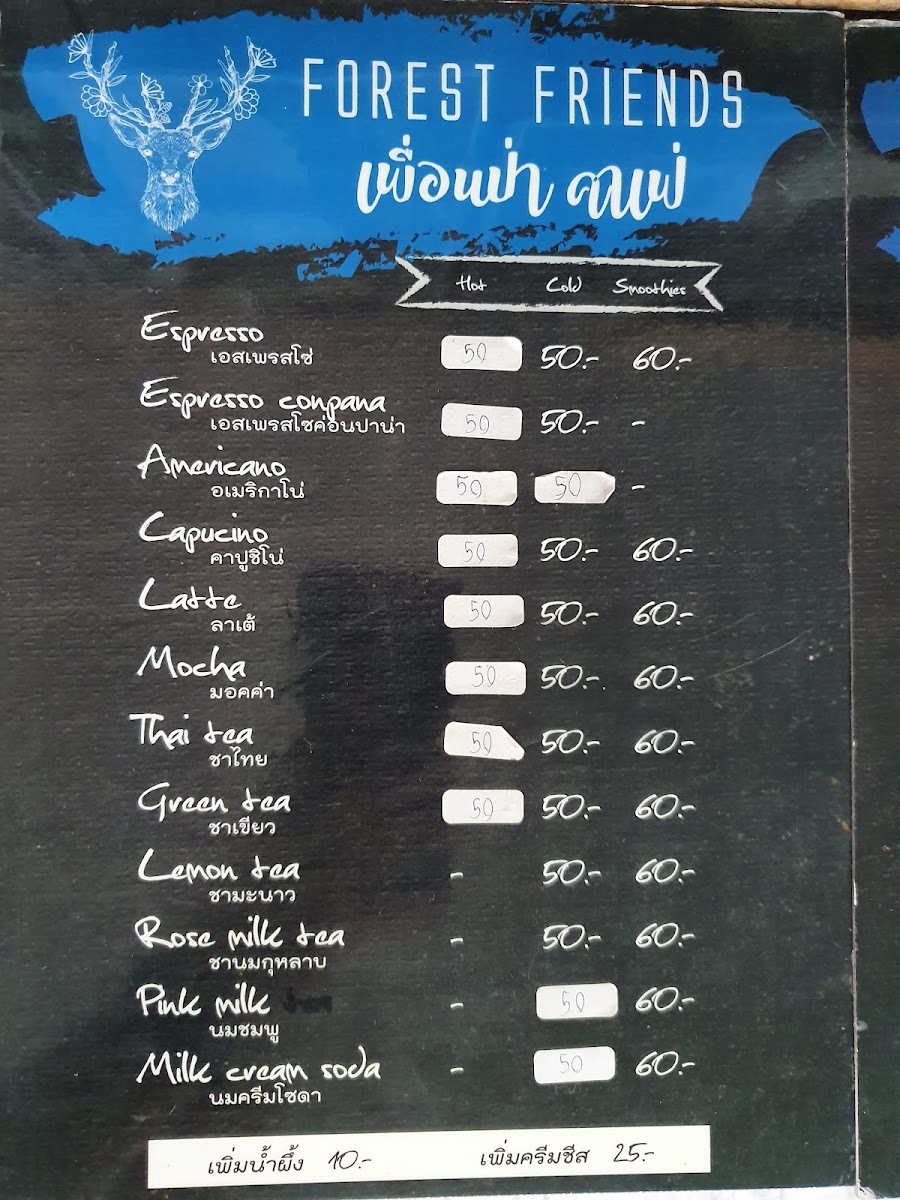 FOREST FRIENDS
เพื่อนป่า คาเฟ่
Hot Cold Smoothies
Espresso
เอสเพรสโซ่ 50 50.- 60.-
Espresso conpana
เอสเพรสโซค่อนปาน่า 50 50.- -
Americano
อเมริกาโน่ 50 50 -
Capucino
คาปูชิโน่ 50 50.- 60.-
Latte
ลาเต้ 50 50.- 60.-
Mocha
มอคค่า 50 50.- 60.-
Thai tea
ชาไทย 50 50.- 60.-
Green tea
ชาเขียว 50 50.- 60.-
Lemon tea
ชามะนาว - 50.- 60.-
Rose milk tea
ชานมกุหลาบ - 50.- 60.-
Pink milk
นมชมพู - 50 60.-
Milk cream soda
นมครีมโซดา - 50 60.-
เพิ่มน้ำผึ้ง 10.- เพิ่มครีมชีส 25.-